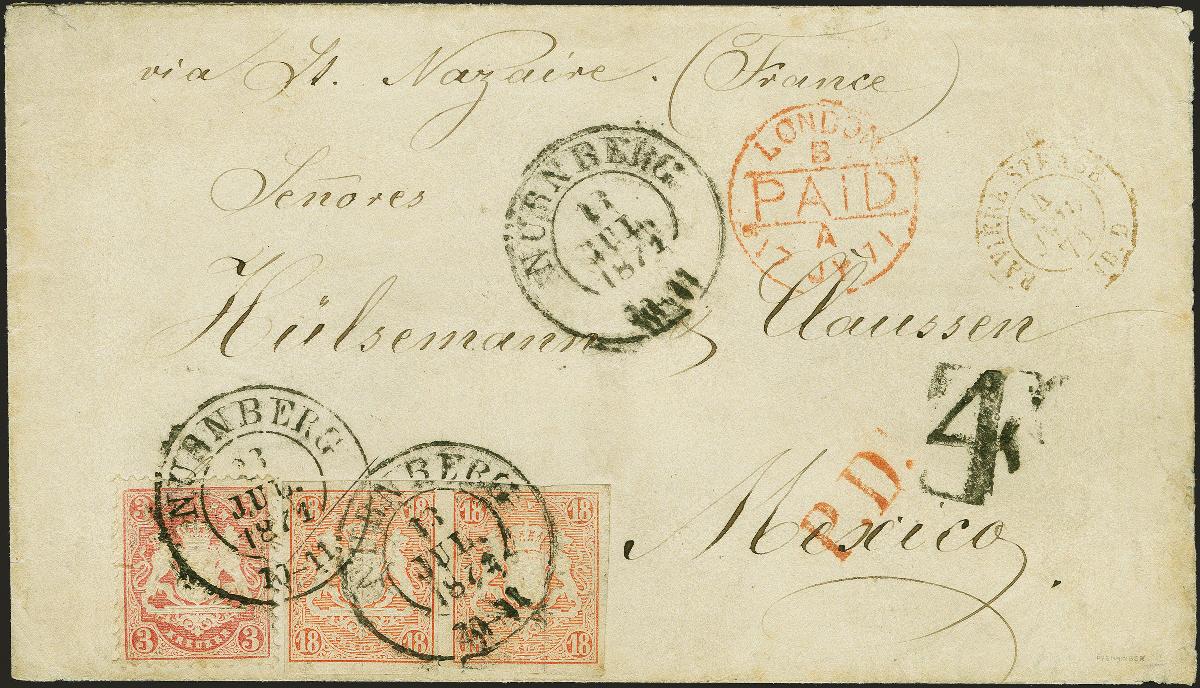 via St. Nazaire. (France
Señores
Hülsemann & Claussen
Mexico
NÜRNBERG
13
JUL.
1871
10-11
LONDON
B
PAID
A
17 JY 71
14
71
4
P.D.
NÜRNBERG
13
JUL.
1871
10-11.
NÜRNBERG
13
JUL.
1871
10-11
3
3 3
18 18
18 18
18 18
18
PFENNINGER